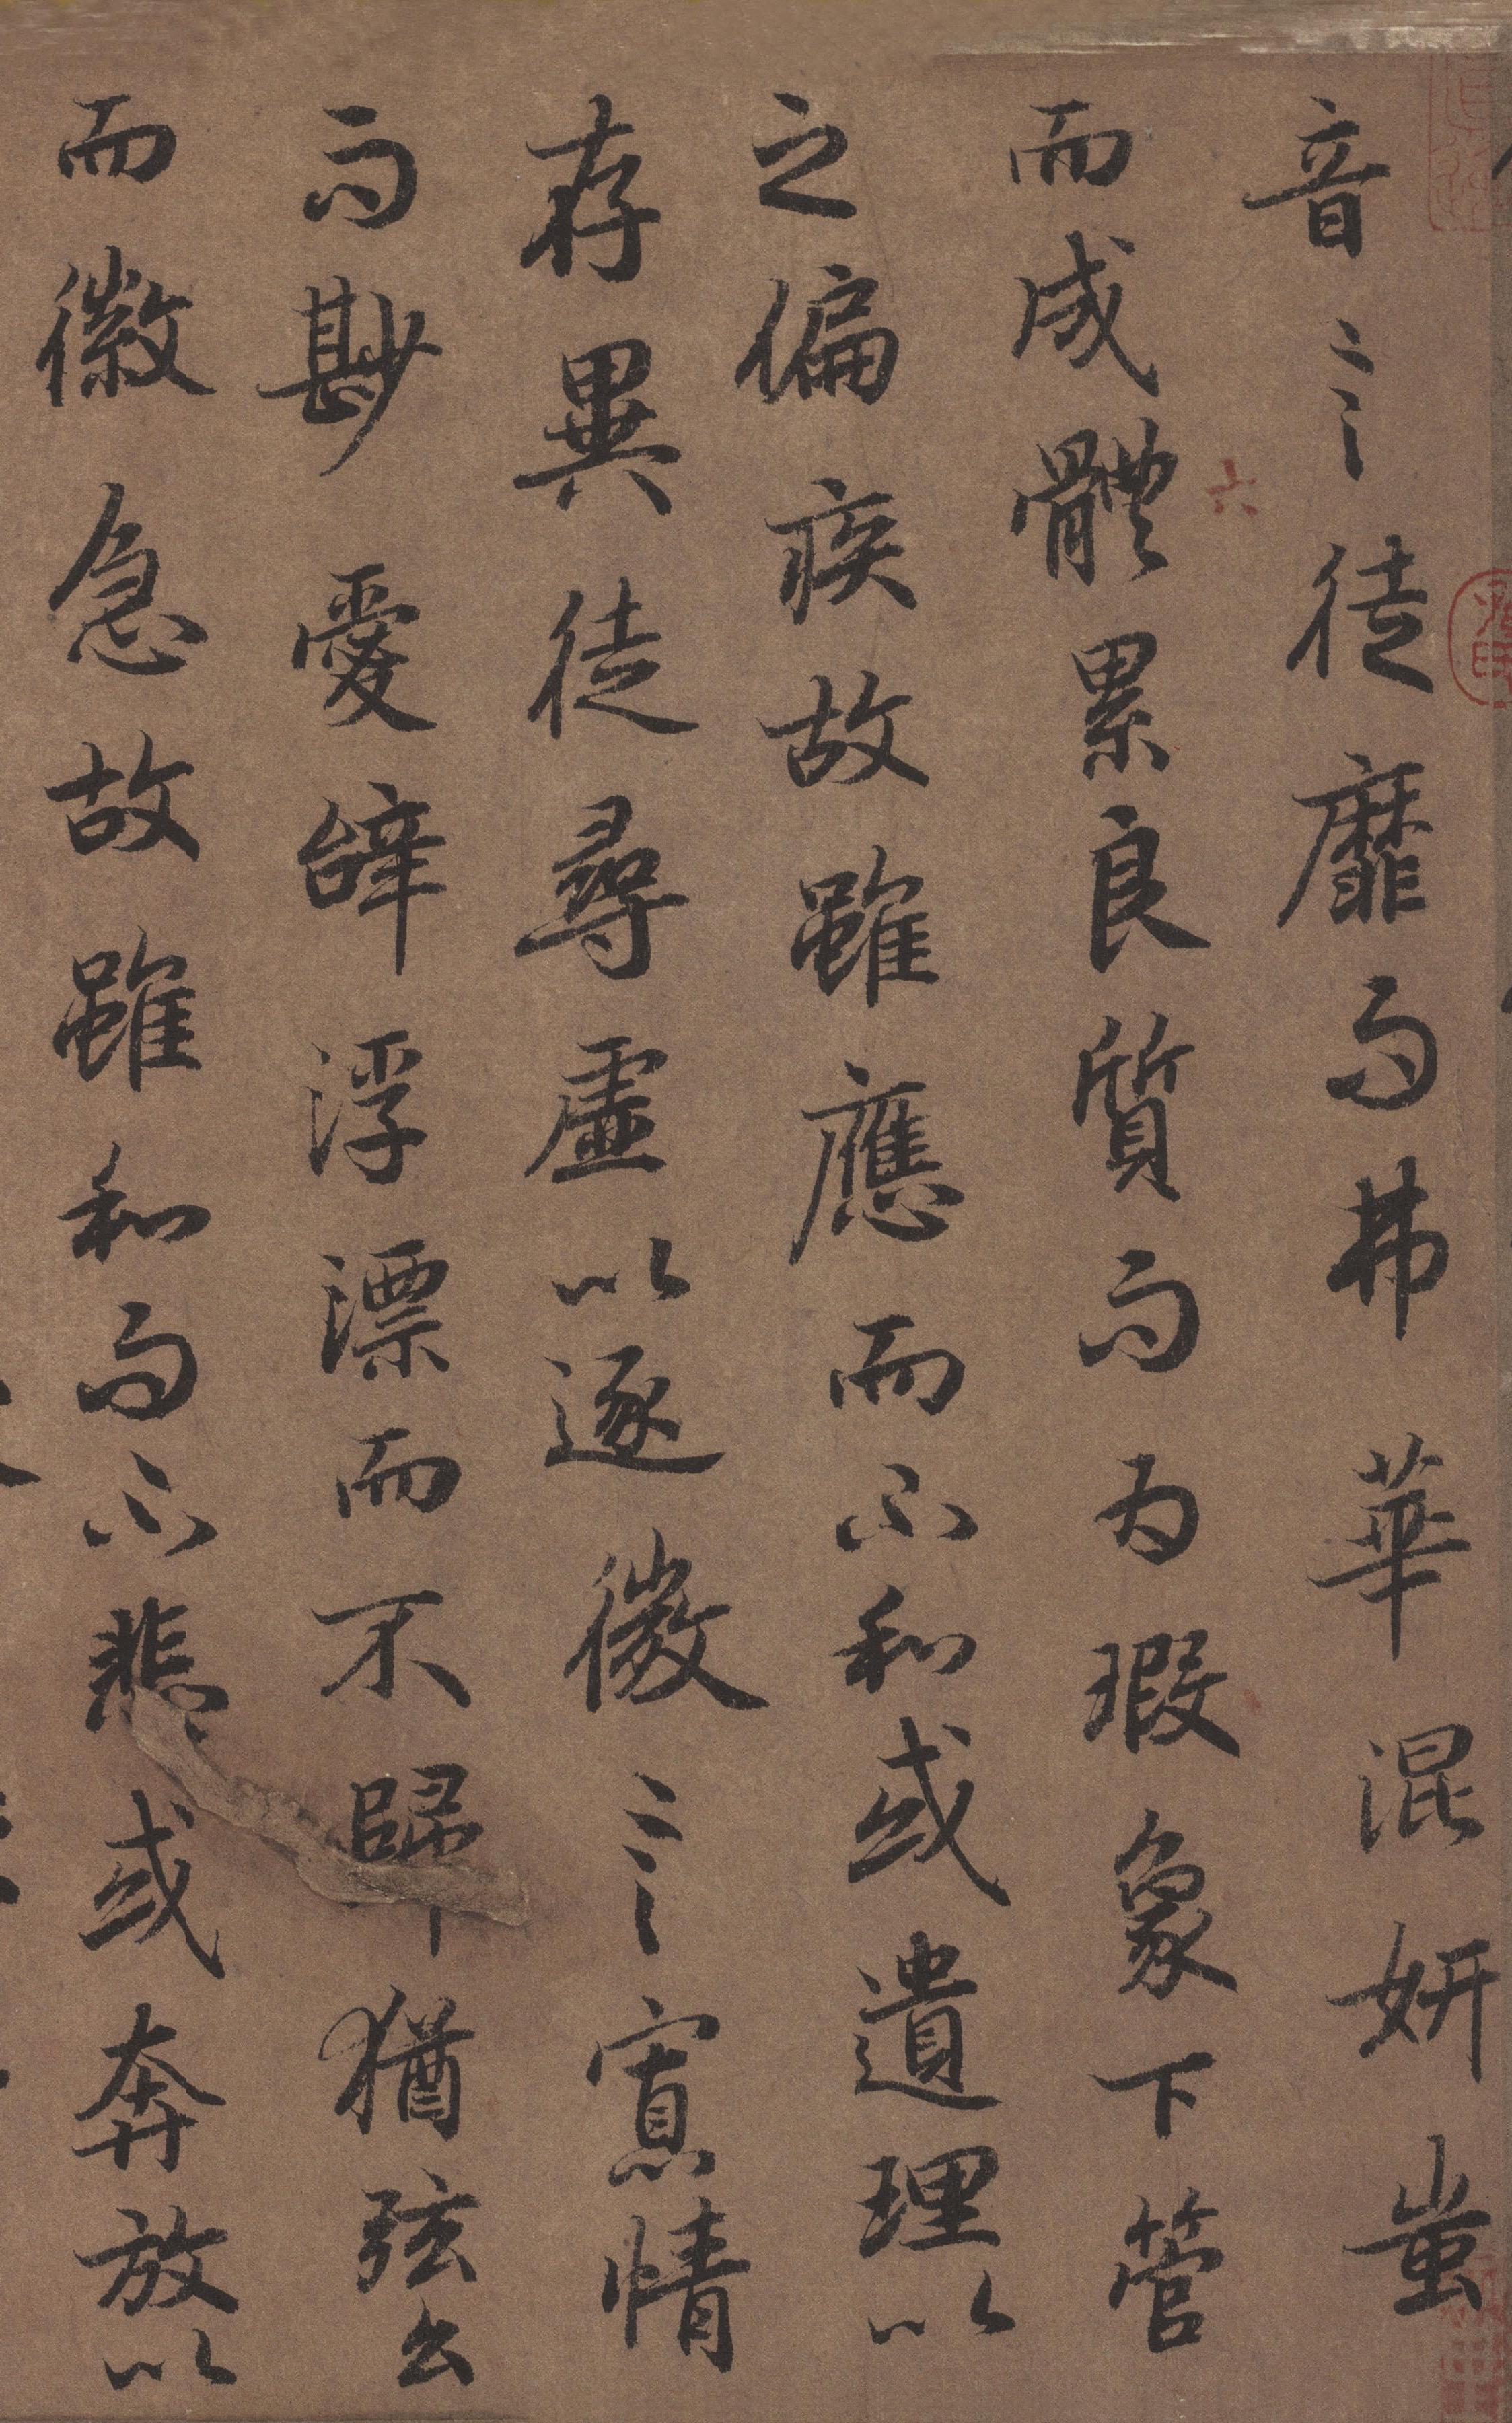 音言徒靡而弗華混妍蚩
而成體累良質而為瑕象下管
之偏疾故雖應而不和或遺理以
存異徒尋虛以逐微言寡情
而尠愛辭浮漂而不歸猶弦么
而徽急故雖和而不悲或奔放以
六